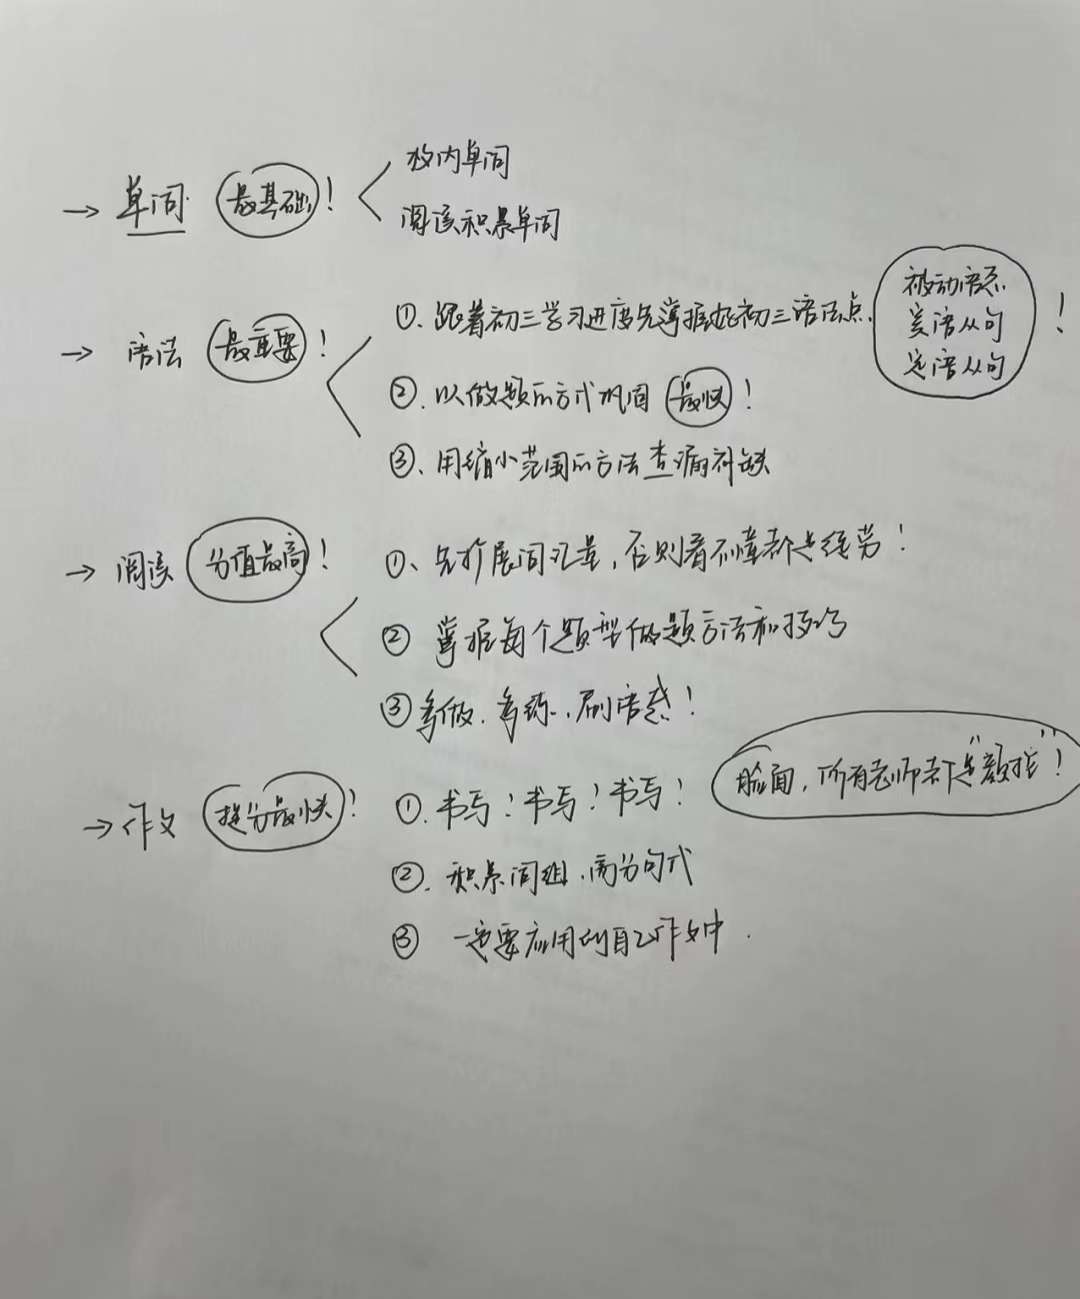 → 单词 最基础！
校内单词
阅读积累单词
→ 语法 最重要！
①. 跟着初三学习进度先掌握好初三语法点.
被动语态
宾语从句
定语从句
！
②. 以做题的方式巩固 最快！
③、用缩小范围的方法查漏补缺
→ 阅读 分值最高！
①、先扩展词汇量，否则看不懂都是徒劳！
② 掌握每个题型做题方法和技巧
③ 多做、多练、刷语感！
→ 作文 提分最快！
①. 书写！书写！书写！
脸面，所有老师都是“颜控”！
②. 积累词组、高分句式
③ 一定要应用到自己作文中.